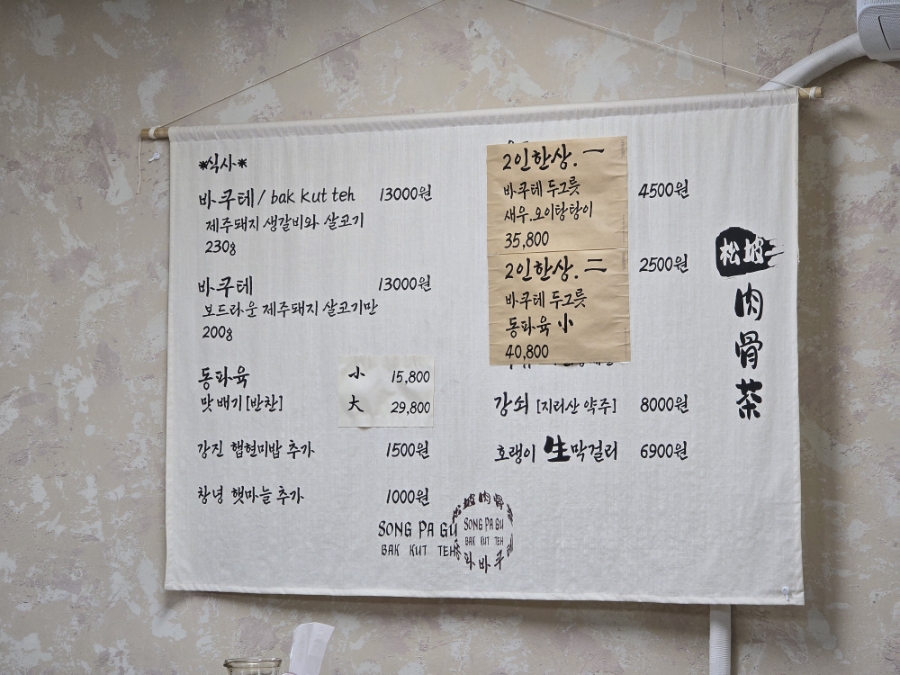 *식사*
바쿠테 / bak kut teh 13000원
제주돼지 생갈비와 살코기
230g
바쿠테 13000원
보드라운 제주돼지 살코기만
200g
동파육 小 15,800
맛배기 [반찬] 大 29,800
강진 햅현미밥 추가 1500원
창녕 햇마늘 추가 1000원
SONG PA GU
BAK KUT TEH
2인한상. 一
바쿠테 두그릇
새우.오이탕탕이
35,800
4500원
2인한상. 二
바쿠테 두그릇
동파육 小
40,800
2500원
강쇠 [지리산 약주] 8000원
호랭이 生막걸리 6900원
松坡肉骨
SONG PA GU
BAK KUT TEH
파바쿠
松坡
肉骨茶